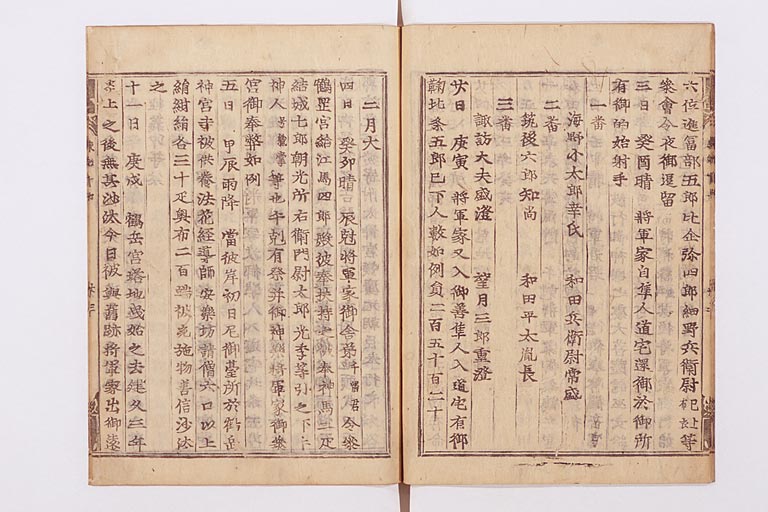 六位進冨部五郎比企弥四郎細野兵衛尉已上等
衆會今夜御逗留
三日　癸酉晴　將軍家自隼人道宅還御於御所
有御的始射手
一番
海野小太郎幸氏　和田兵衛尉常盛
二番
筑後六郎知尚　和田平太胤長
三番
諏訪大夫盛澄　望月三郎重澄
廿日　庚寅　將軍家又入御善隼人入道宅有御
鞠比条五郎已下人數如例員二百五十百二十
二月大
四日　癸卯晴　辰尅將軍家御舎弟千㬢君令參
鶴岳宮給江馬四郎殿被奉扶持之被奉神馬二疋
結城七郎朝光所右衛門尉太郎光季等引之下
神人等也午剋有祭弁御神樂將軍家御參
宮御奉幣如例
五日　甲辰雨降　當彼岸初日尼御臺所於鶴岳
神宮寺被供養法花經導師安樂坊請僧六口以上
絹紺絹各三十疋奥布二百端被充施物善信沙汰
之
十一日　庚戌　鶴岳宮塔地曳始之去建久三年
炎上之後無其沙汰今日彼舊跡將軍家出御遠